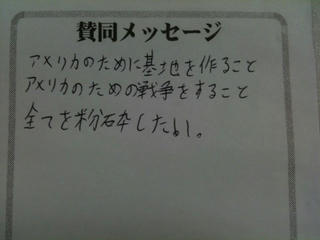 賛同メッセージ
アメリカのために基地を作ること
アメリカのための戦争をすること
全てを粉砕したい。